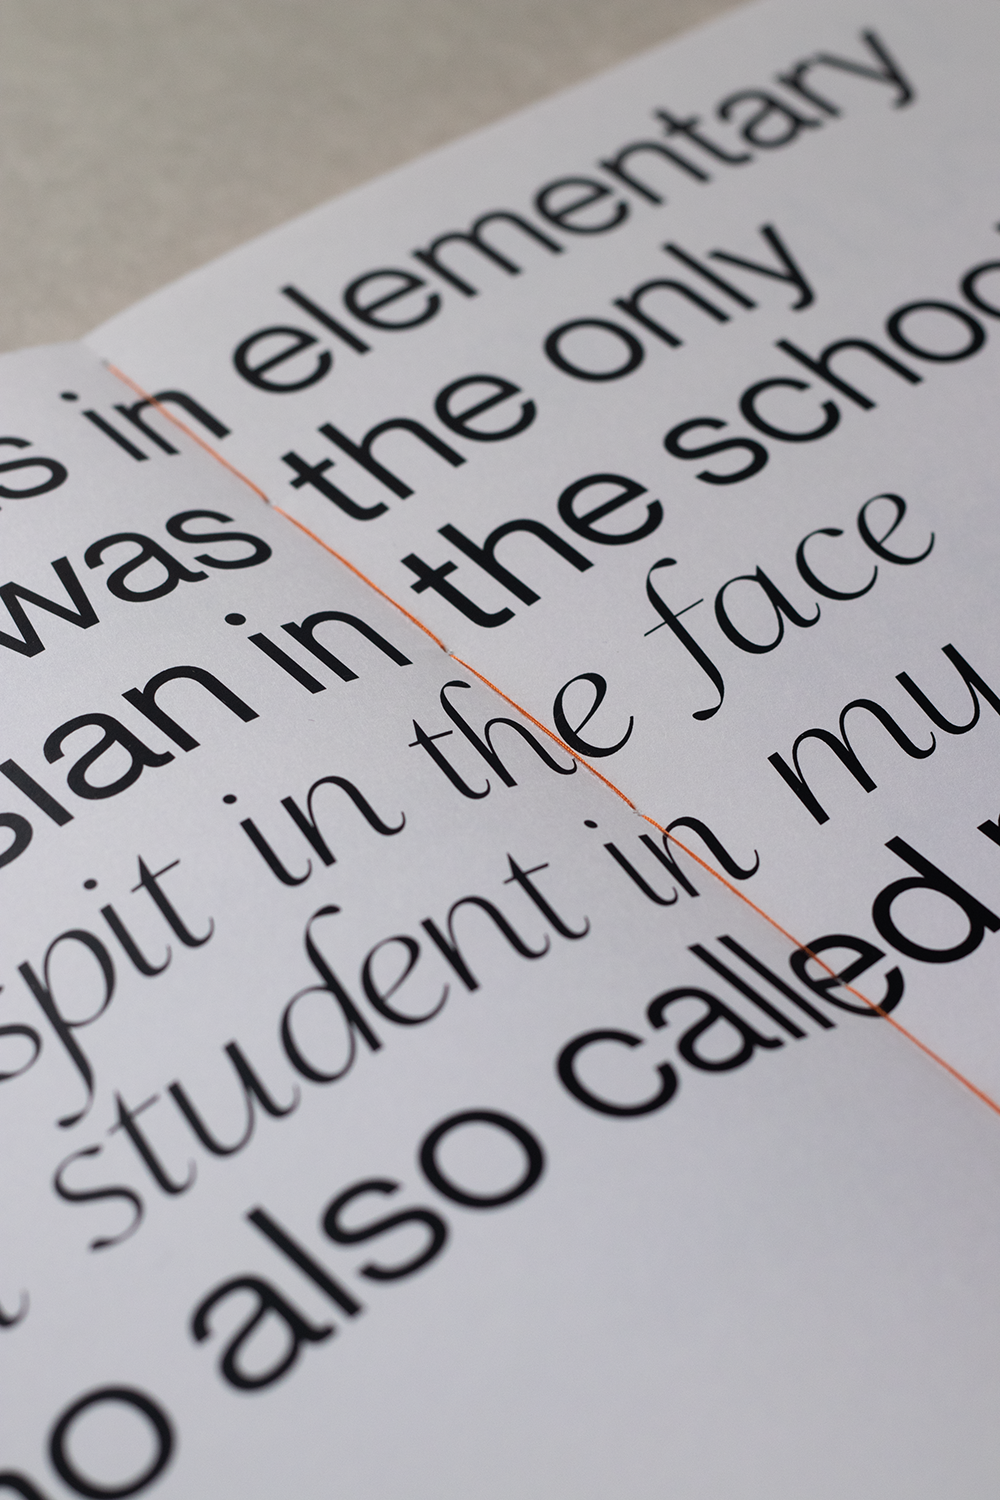 s in elementary
was the only
sian in the schoo
spit in the face
student in my
o also called